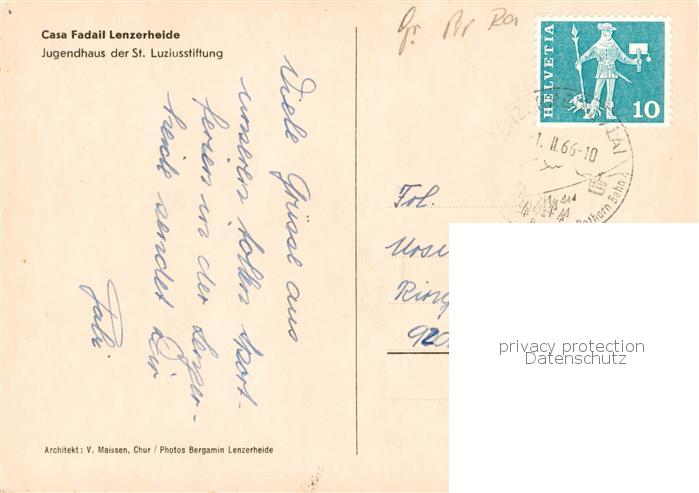 Casa Fadail Lenzerheide
Jugendhaus der St. Luziusstiftung
Viele Grüsse aus
unseren tollen Sport-
ferien in der Lenzer-
heide sendet Dir
Gr.
HELVETIA
10
1. II. 66-10
Rothorn Bahn
Frl.
Ursi
Ring
920
privacy protection
Datenschutz
Architekt: V. Maissen, Chur / Photos Bergamin Lenzerheide